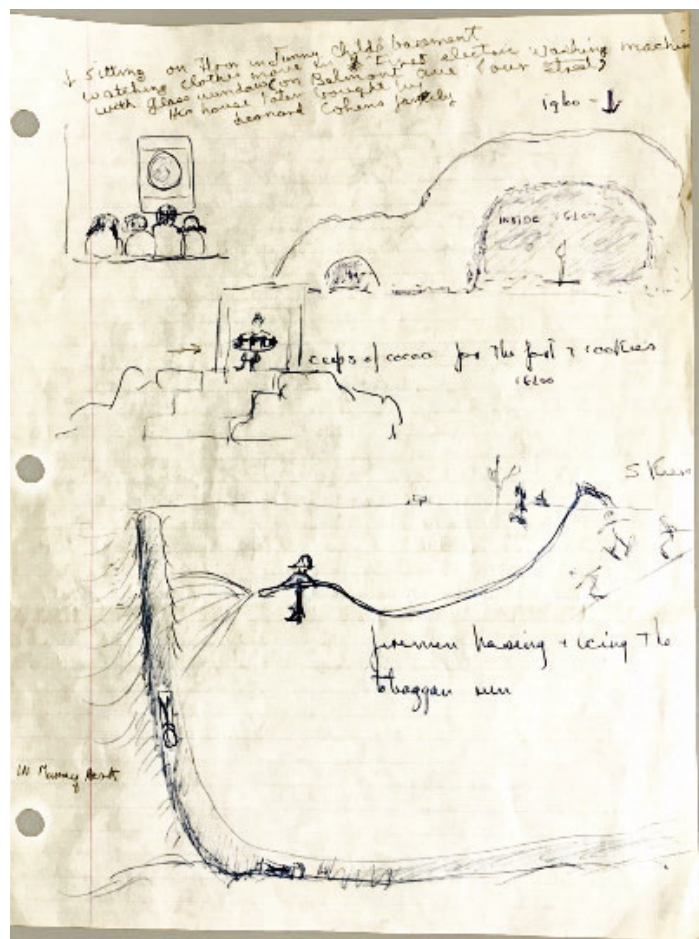 ↓ Sitting on floor in Jimmy Childs basement
watching clothes move in 1st electric washing machine
with glass window on Belmont ave (our street)
His house later bought by
Leonard Cohens family
igloo - ↓
INSIDE IGLOO
cups of cocoa for the fort & cookies
IGLOO
firemen hosing & icing the
tobaggan run
IN Murray Park